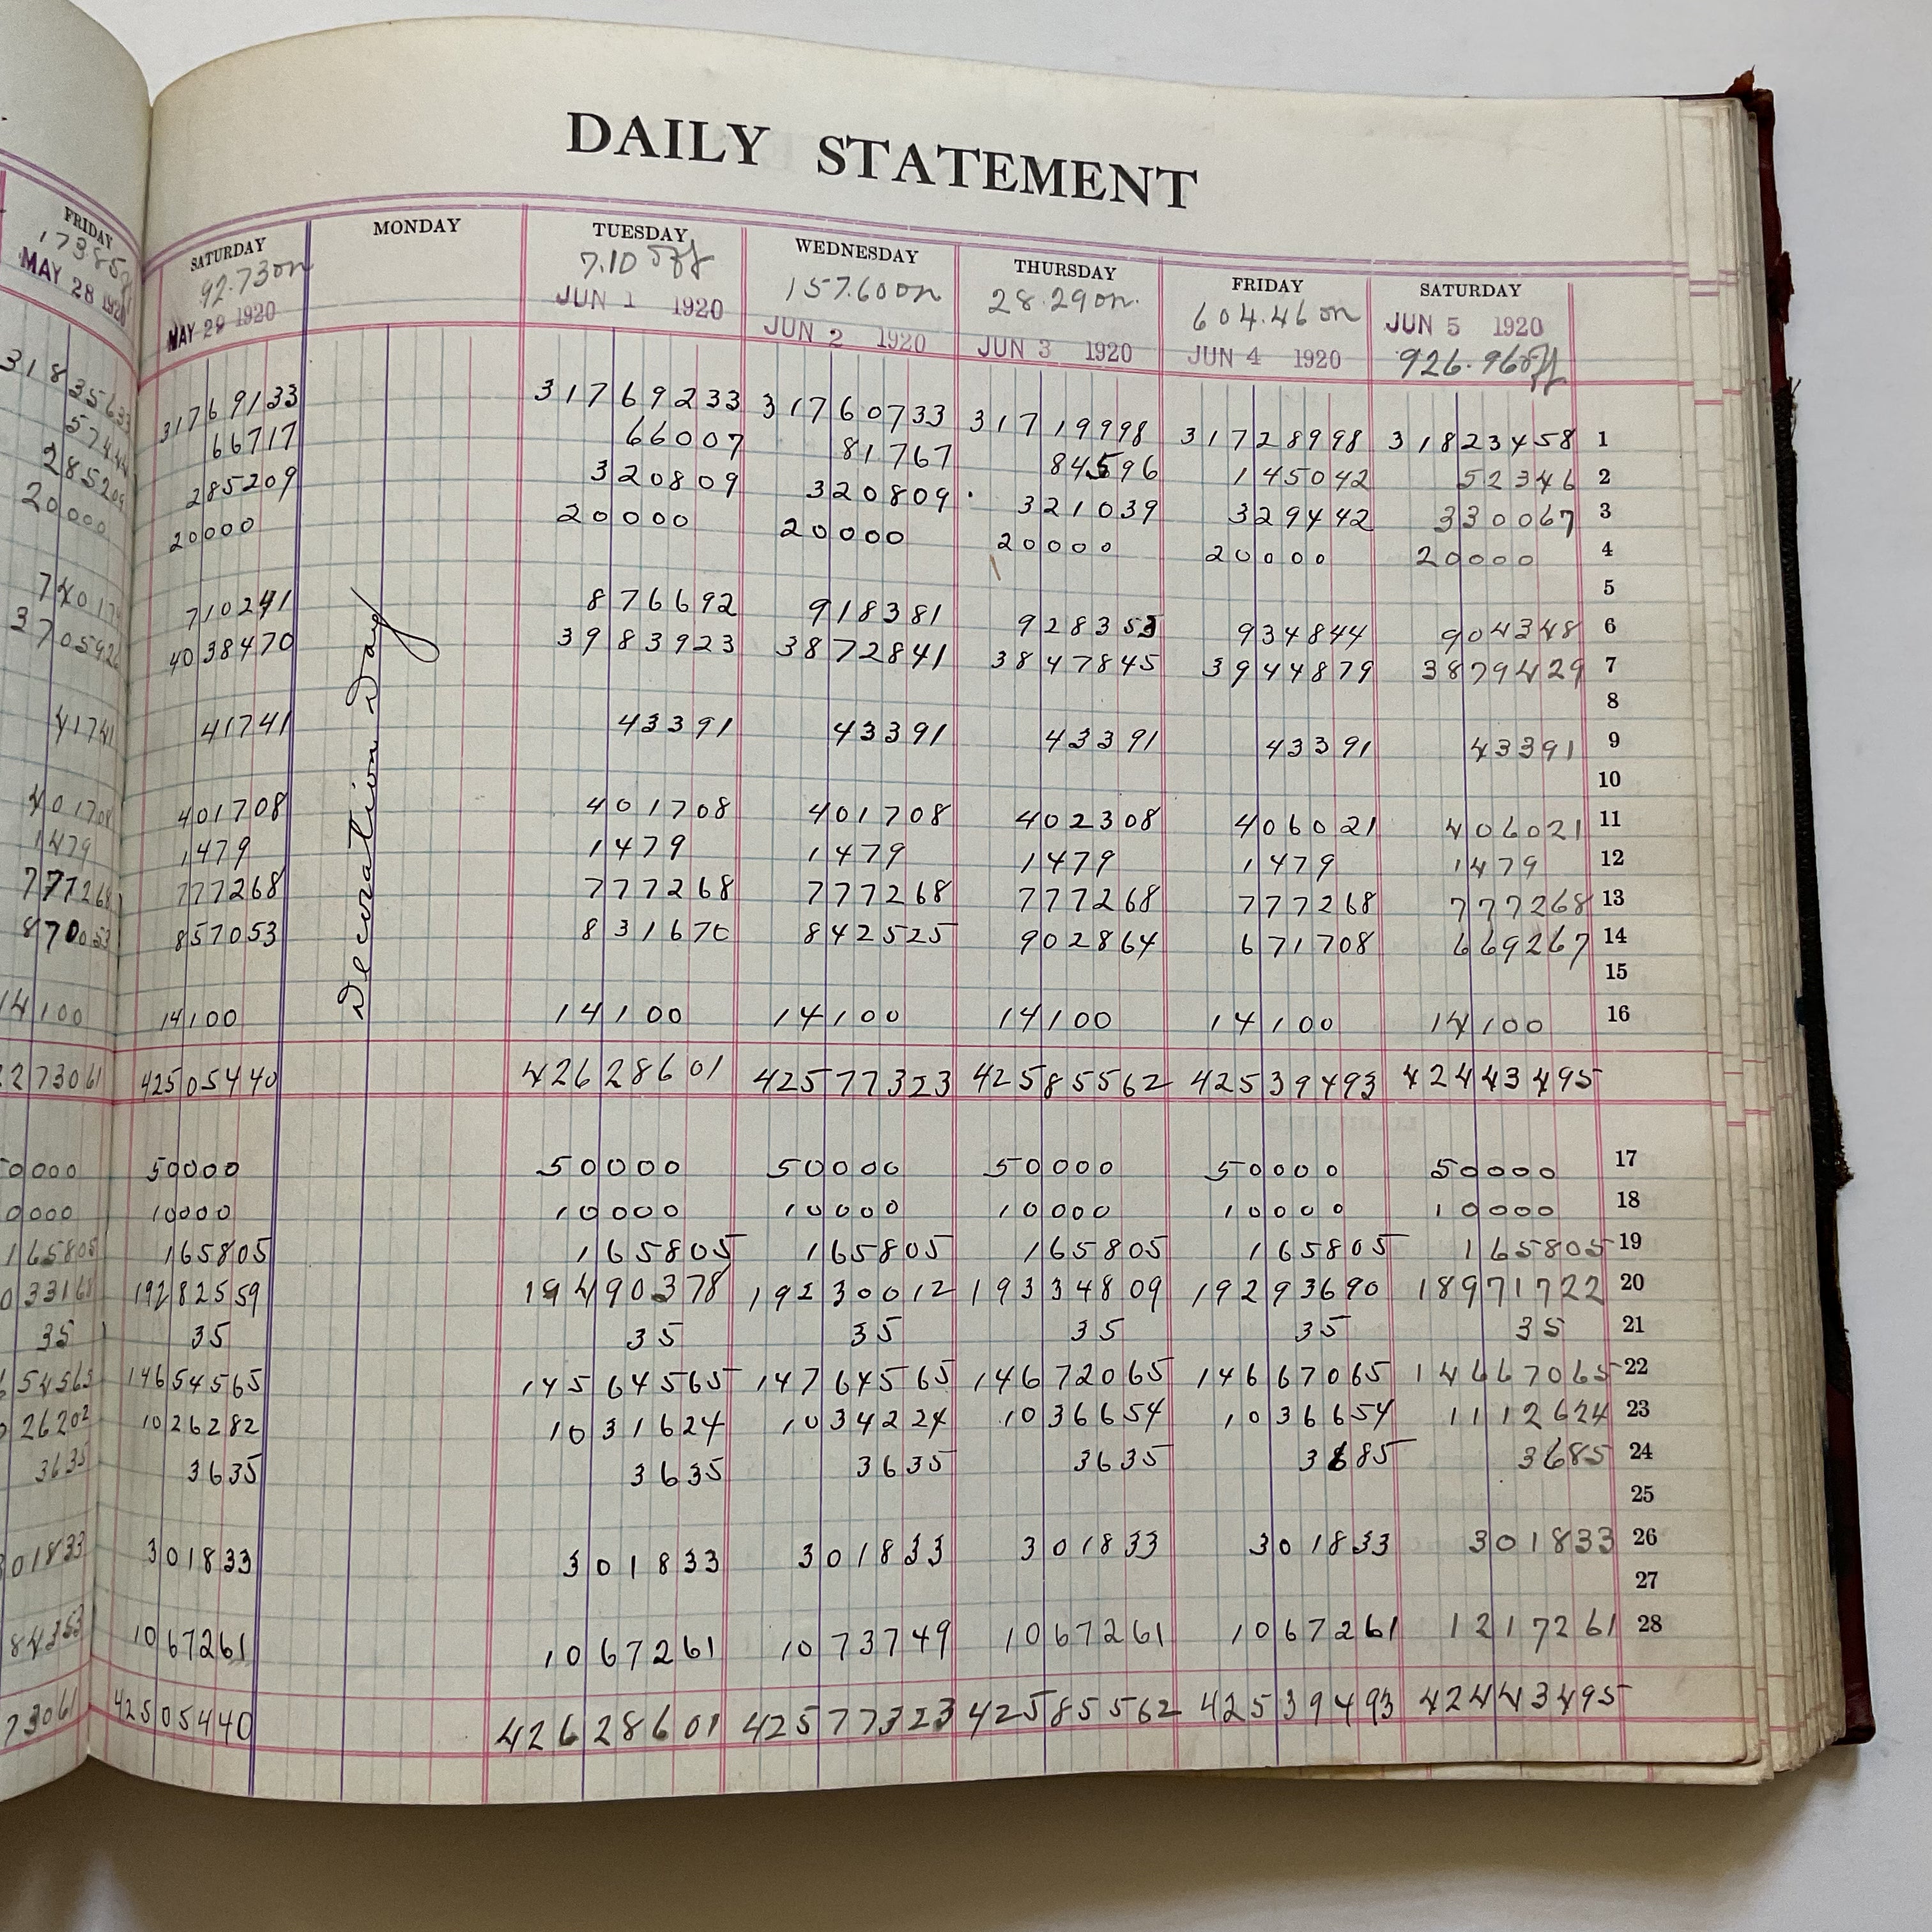 DAILY STATEMENT
FRIDAY SATURDAY MONDAY TUESDAY WEDNESDAY THURSDAY FRIDAY SATURDAY
92.73 on 7.10 off 157.60 on 28.29 on. 604.46 on
MAY 28 1920 MAY 29 1920 JUN 1 1920 JUN 2 1920 JUN 3 1920 JUN 4 1920 JUN 5 1920
926.96 off
Decoration Day
31769133 31769233 31760733 31719998 31728998 31823458 1
66717 66007 81767 84596 145042 52346 2
285209 285209 320809 320809 321039 329442 330067 3
20000 20000 20000 20000 20000 20000 20000 4
5
710241 876692 918381 928353 934844 904348 6
4038470 3983923 3872841 3847845 3944879 3879429 7
8
41741 41741 43391 43391 43391 43391 43391 9
10
401708 401708 401708 401708 402308 406021 406021 11
1479 1479 1479 1479 1479 1479 1479 12
777268 777268 777268 777268 777268 777268 777268 13
870053 857053 831670 842525 902864 671708 669267 14
15
14100 14100 14100 14100 14100 14100 14100 16
2273061 42505440 42628601 42577323 42585562 42539493 42443495
50000 50000 50000 50000 50000 50000 50000 17
0000 10000 10000 10000 10000 10000 10000 18
165805 165805 165805 165805 165805 165805 165805 19
19282559 19490378 19230012 19334809 19293690 18971722 20
35 35 35 35 35 35 35 21
54565 14654565 14564565 14764565 14672065 14667065 14667065 22
26202 1026282 1031624 1034224 1036654 1036654 1112624 23
3635 3635 3635 3635 3635 3685 3685 24
25
01833 301833 301833 301833 301833 301833 301833 26
27
1067261 1067261 1073749 1067261 1067261 1217261 28
73061 42505440 42628601 42577323 42585562 42539493 42443495